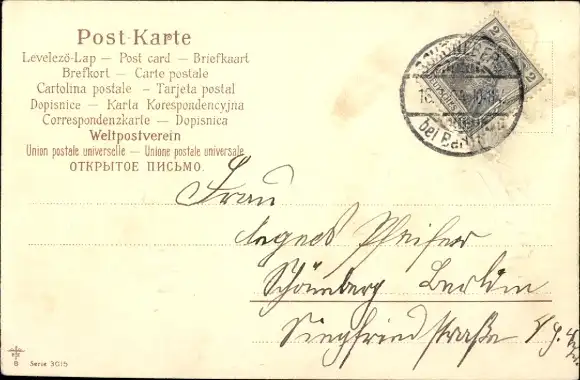 Post-Karte
Levelező-Lap — Post card — Briefkaart
Brefkort — Carte postale
Cartolina postale — Tarjeta postal
Dopisnice — Karta Korespondencyjna
Correspondenzkarte — Dopisnica
Weltpostverein
Union postale universelle — Unione postale universale
ОТКРЫТОЕ ПИСЬМО.
2
2
SCHÖNEBERG
bei Berlin
Frau
Agnes Pfeifer
Schöneberg Berlin
Siegfriedstraße
8 Serie 3015